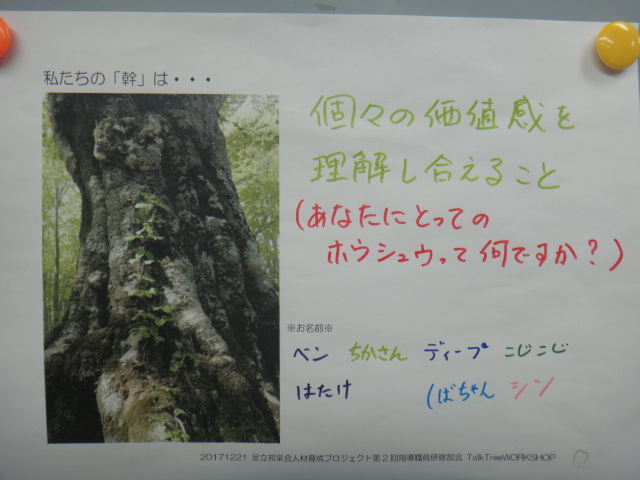 私たちの「幹」は・・・
個々の価値感を
理解し合えること
(あなたにとっての
ホウシュウって何ですか?)
※お名前※
ベン ちかさん ディープ こじこじ
はたけ しばちゃん シン
20171221 足立邦栄会人材育成プロジェクト第2回指導職員研修部会 TalkTreeWORKSHOP